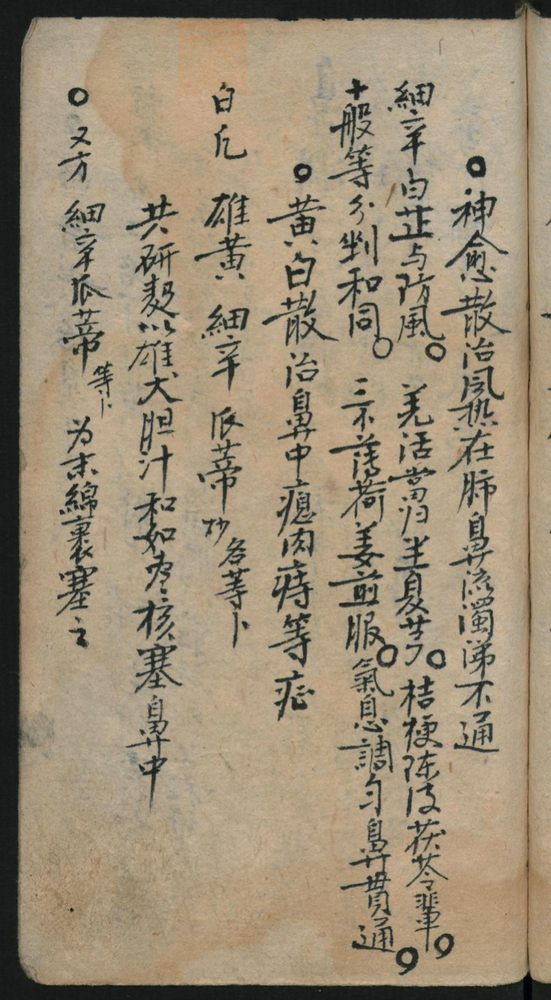 ○神愈散治風热在肺鼻流濁涕不通
細辛白芷与防風○羌活當归半夏芎○桔梗陈皮茯苓辈○
十般等分剉和同○三不薄荷姜煎服○氣息調匀鼻貫通○
○黄白散治鼻中瘜肉痔等症
白凡 雄黄 細辛 瓜蒂炒各等卜
共研
以雄犬胆汁和如枣核塞鼻中
○又方 細辛瓜蒂等卜为末綿裹塞之